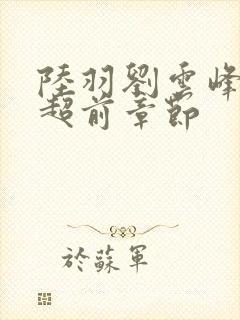 陸羽劉雲峰
超前章節
於蘇軍